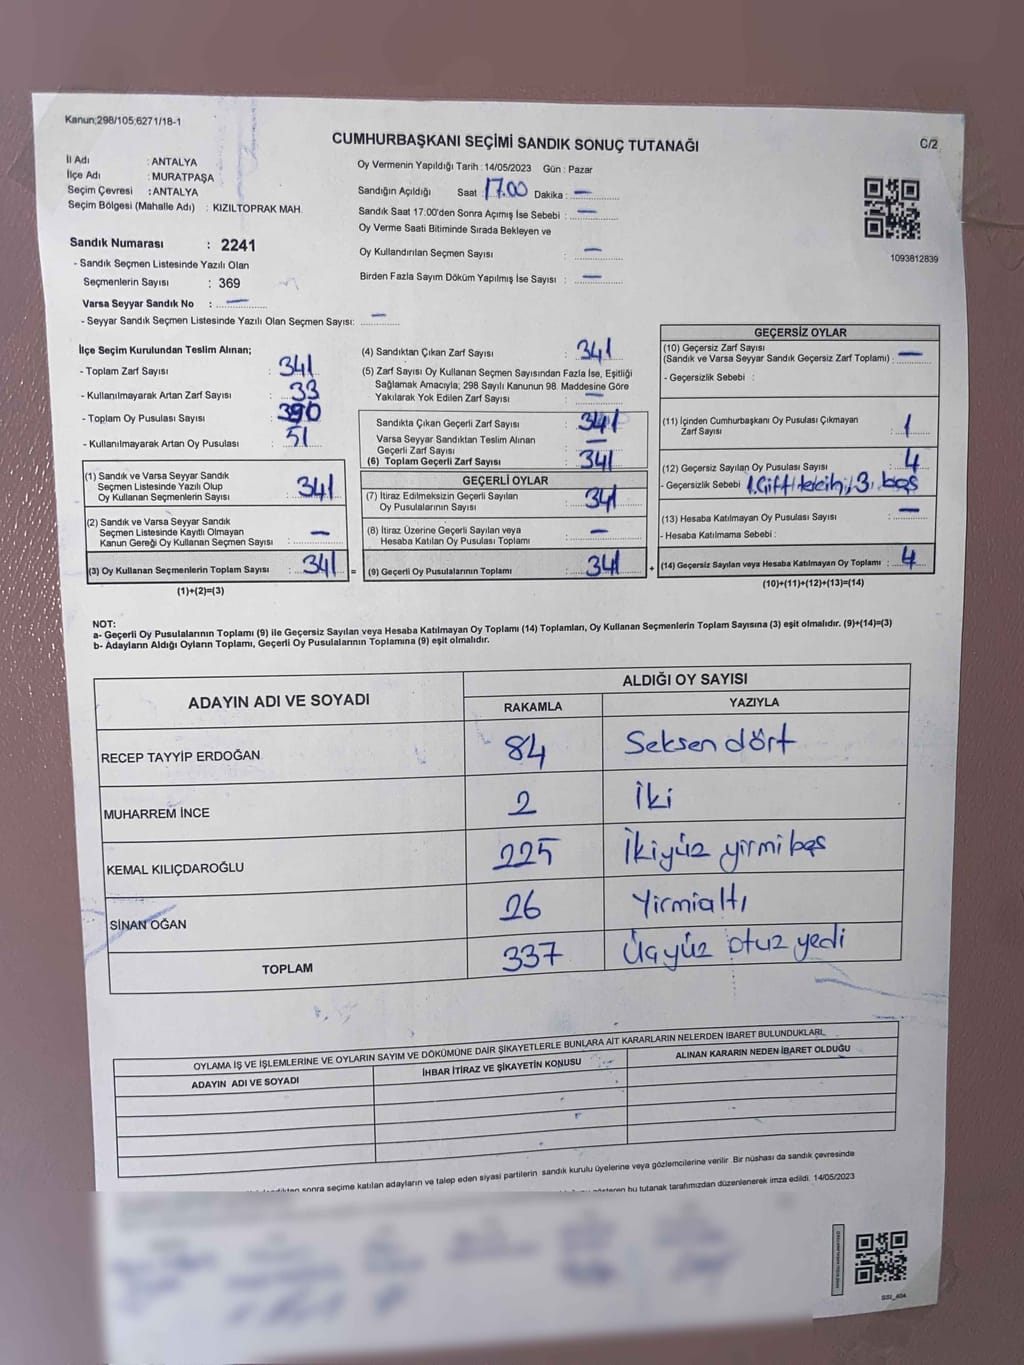 Kanun;298/105,6271/18-1
CUMHURBAŞKANI SEÇİMİ SANDIK SONUÇ TUTANAĞI
C/2
İl Adı : ANTALYA
İlçe Adı : MURATPAŞA
Seçim Çevresi : ANTALYA
Seçim Bölgesi (Mahalle Adı) : KIZILTOPRAK MAH.
Oy Vermenin Yapıldığı Tarih : 14/05/2023 Gün : Pazar
Sandığın Açıldığı Saat 17.00 Dakika : —
Sandık Saat 17.00'den Sonra Açımış İse Sebebi : —
Oy Verme Saati Bitiminde Sırada Bekleyen ve
Oy Kullandırılan Seçmen Sayısı : —
Birden Fazla Sayım Döküm Yapılmış İse Sayısı : —
1093812839
Sandık Numarası : 2241
- Sandık Seçmen Listesinde Yazılı Olan
Seçmenlerin Sayısı : 369
Varsa Seyyar Sandık No : —
- Seyyar Sandık Seçmen Listesinde Yazılı Olan Seçmen Sayısı: —
İlçe Seçim Kurulundan Teslim Alınan;
- Toplam Zarf Sayısı : 341
- Kullanılmayarak Artan Zarf Sayısı : 33
- Toplam Oy Pusulası Sayısı : 390
- Kullanılmayarak Artan Oy Pusulası : 51
(1) Sandık ve Varsa Seyyar Sandık
Seçmen Listesinde Yazılı Olup
Oy Kullanan Seçmenlerin Sayısı : 341
(2) Sandık ve Varsa Seyyar Sandık
Seçmen Listesinde Kayıtlı Olmayan
Kanun Gereği Oy Kullanan Seçmen Sayısı : —
(3) Oy Kullanan Seçmenlerin Toplam Sayısı : 341 =
(1)+(2)=(3)
(4) Sandıktan Çıkan Zarf Sayısı : 341
(5) Zarf Sayısı Oy Kullanan Seçmen Sayısından Fazla İse, Eşitliği
Sağlamak Amacıyla; 298 Sayılı Kanunun 98. Maddesine Göre
Yakılarak Yok Edilen Zarf Sayısı : —
Sandıkta Çıkan Geçerli Zarf Sayısı : 341
Varsa Seyyar Sandıktan Teslim Alınan
Geçerli Zarf Sayısı : —
(6) Toplam Geçerli Zarf Sayısı : 341
GEÇERLİ OYLAR
(7) İtiraz Edilmeksizin Geçerli Sayılan
Oy Pusulalarının Sayısı : 341
(8) İtiraz Üzerine Geçerli Sayılan veya
Hesaba Katılan Oy Pusulası Toplamı : —
(9) Geçerli Oy Pusulalarının Toplamı : 341 +
GEÇERSİZ OYLAR
(10) Geçersiz Zarf Sayısı
(Sandık ve Varsa Seyyar Sandık Geçersiz Zarf Toplamı) : —
- Geçersizlik Sebebi :
(11) İçinden Cumhurbaşkanı Oy Pusulası Çıkmayan
Zarf Sayısı : 1
(12) Geçersiz Sayılan Oy Pusulası Sayısı : 4
- Geçersizlik Sebebi 1.Çift tercih, 3. boş
(13) Hesaba Katılmayan Oy Pusulası Sayısı : —
- Hesaba Katılmama Sebebi :
(14) Geçersiz Sayılan veya Hesaba Katılmayan Oy Toplamı : 4
(10)+(11)+(12)+(13)=(14)
NOT:
a- Geçerli Oy Pusulalarının Toplamı (9) ile Geçersiz Sayılan veya Hesaba Katılmayan Oy Toplamı (14) Toplamları, Oy Kullanan Seçmenlerin Toplam Sayısına (3) eşit olmalıdır. (9)+(14)=(3)
b- Adayların Aldığı Oyların Toplamı, Geçerli Oy Pusulalarının Toplamına (9) eşit olmalıdır.
ADAYIN ADI VE SOYADI ALDIĞI OY SAYISI
RAKAMLA YAZIYLA
RECEP TAYYİP ERDOĞAN 84 Seksen dört
MUHARREM İNCE 2 İki
KEMAL KILIÇDAROĞLU 225 İkiyüz yirmi beş
SİNAN OĞAN 26 Yirmialtı
TOPLAM 337 Üçyüz otuz yedi
OYLAMA İŞ VE İŞLEMLERİNE VE OYLARIN SAYIM VE DÖKÜMÜNE DAİR ŞİKAYETLERLE BUNLARA AİT KARARLARIN NELERDEN İBARET BULUNDUKLARI
ADAYIN ADI VE SOYADI İHBAR İTİRAZ VE ŞİKAYETİN KONUSU ALINAN KARARIN NEDEN İBARET OLDUĞU
sonra seçime katılan adayların ve talep eden siyasi partilerin sandık kurulu üyelerine veya gözlemcilerine verilir. Bir nüshası da sandık çevresinde
bu tutanak tarafımızdan düzenlenerek imza edildi. 14/05/2023
SSİ_404